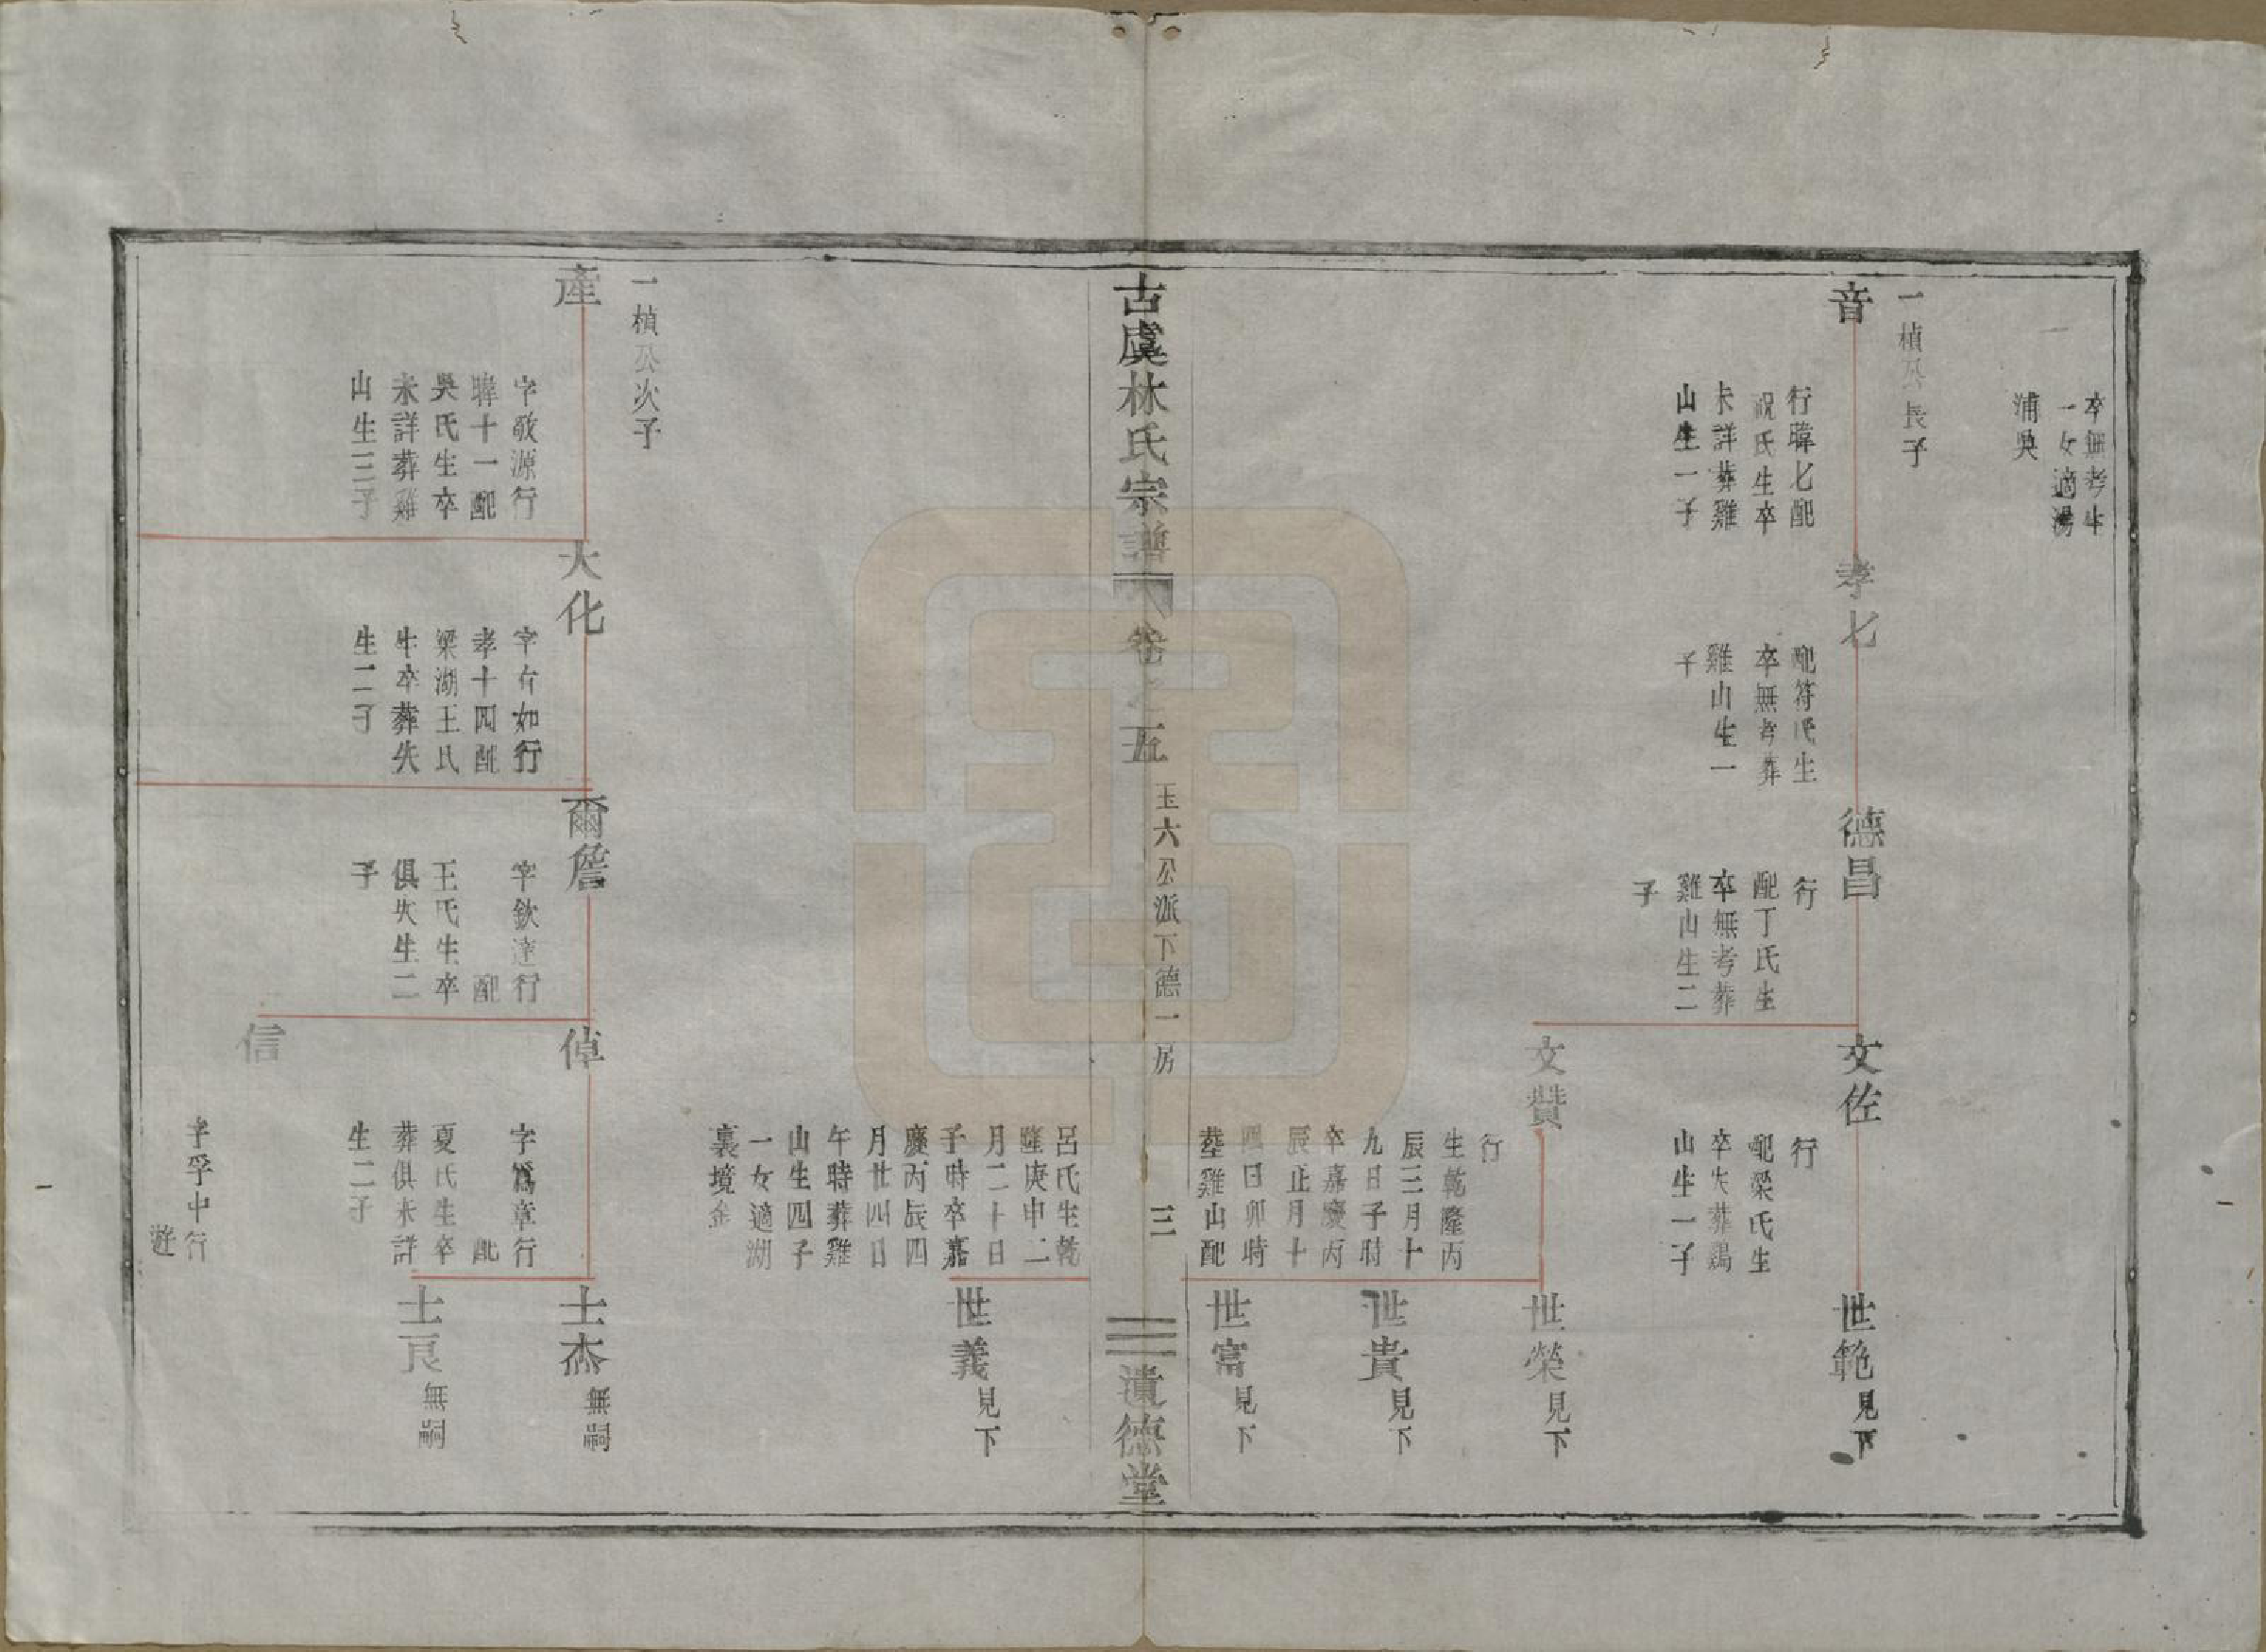 卒無考生
一女適湯
浦吳
一楨公長子
音
行暐七配
祝氏生卒
未詳葬雞
山生一子
孝七
配符氏生
卒無考葬
雞山生一
子
德昌
行
配丁氏生
卒無考葬
雞山生二
子
文佐
行
配梁氏生
卒失葬鷄
山生一子
世範見下
文贊
行
生乾隆丙
辰三月十
九日子時
卒嘉慶丙
辰正月十
四日卯時
葬雞山配
世榮見下
世貴見下
世富見下
古虞林氏宗譜
卷之五
玉六公派下德一房
三
遺德堂
呂氏生乾
隆庚申二
月二十日
子時卒嘉
慶丙辰四
月廿四日
午時葬雞
山生四子
一女適湖
裏境金
世義見下
一楨公次子
產
字敬源行
暐十一配
吳氏生卒
未詳葬雞
山生三子
大化
字右如行
孝十四配
梁湖王氏
生卒葬失
生二子
爾詹
字欽達行
配
王氏生卒
俱失生二
子
倬
字為章行
配
夏氏生卒
葬俱未詳
生二子
士杰無嗣
士良無嗣
信
字孚中行
遊